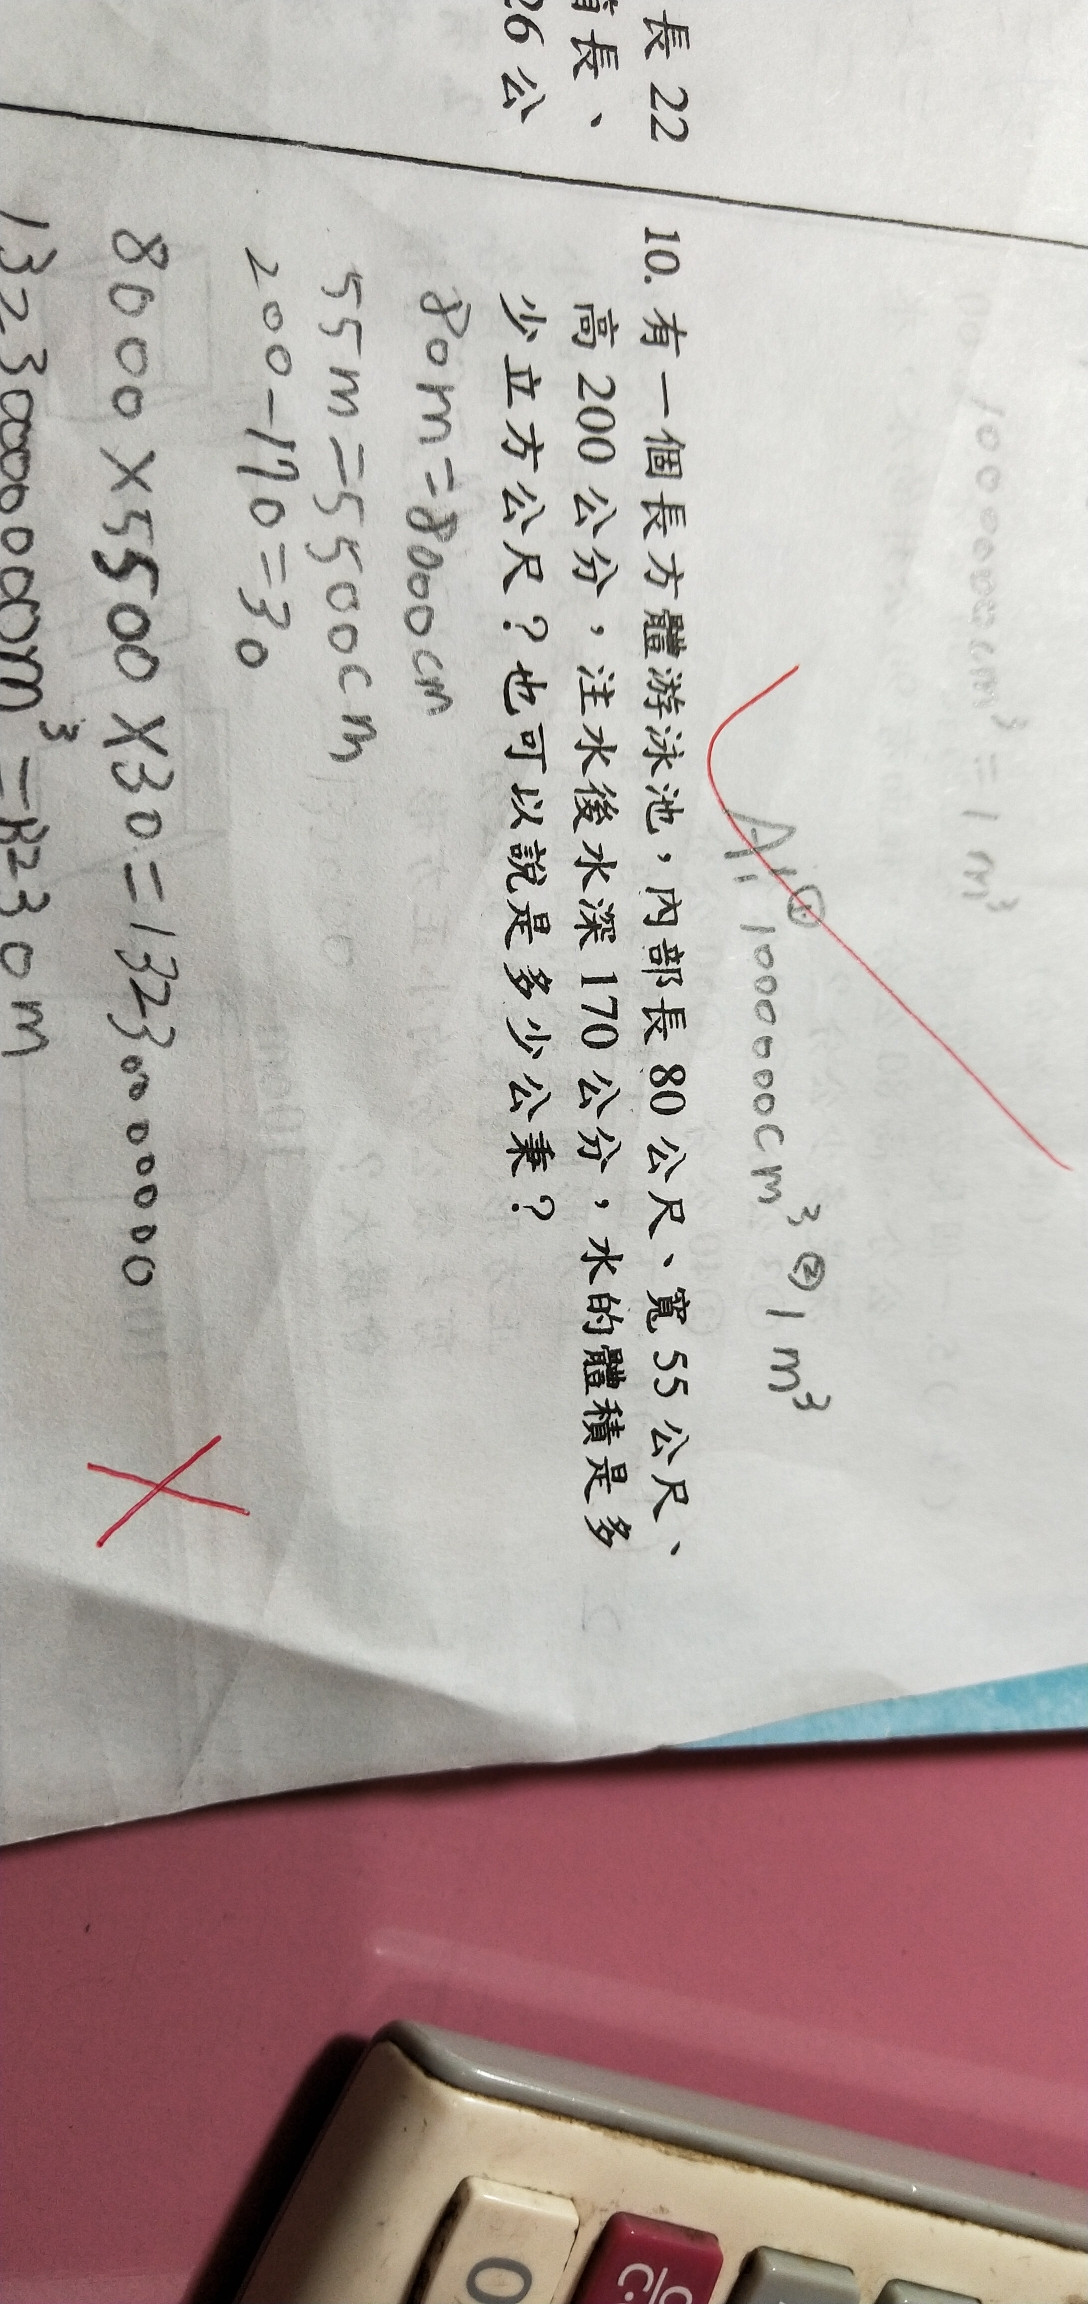 長 22
長、
26 公
10000000cm³=1m³
A:① 1000000cm³ ② 1m³
10. 有一個長方體游泳池,內部長 80 公尺、寬 55 公尺、
高 200 公分,注水後水深 170 公分,水的體積是多
少立方公尺?也可以說是多少公秉?
80m=8000cm
55m=5500cm
200-170=30
8000×5500×30=1323000000
0